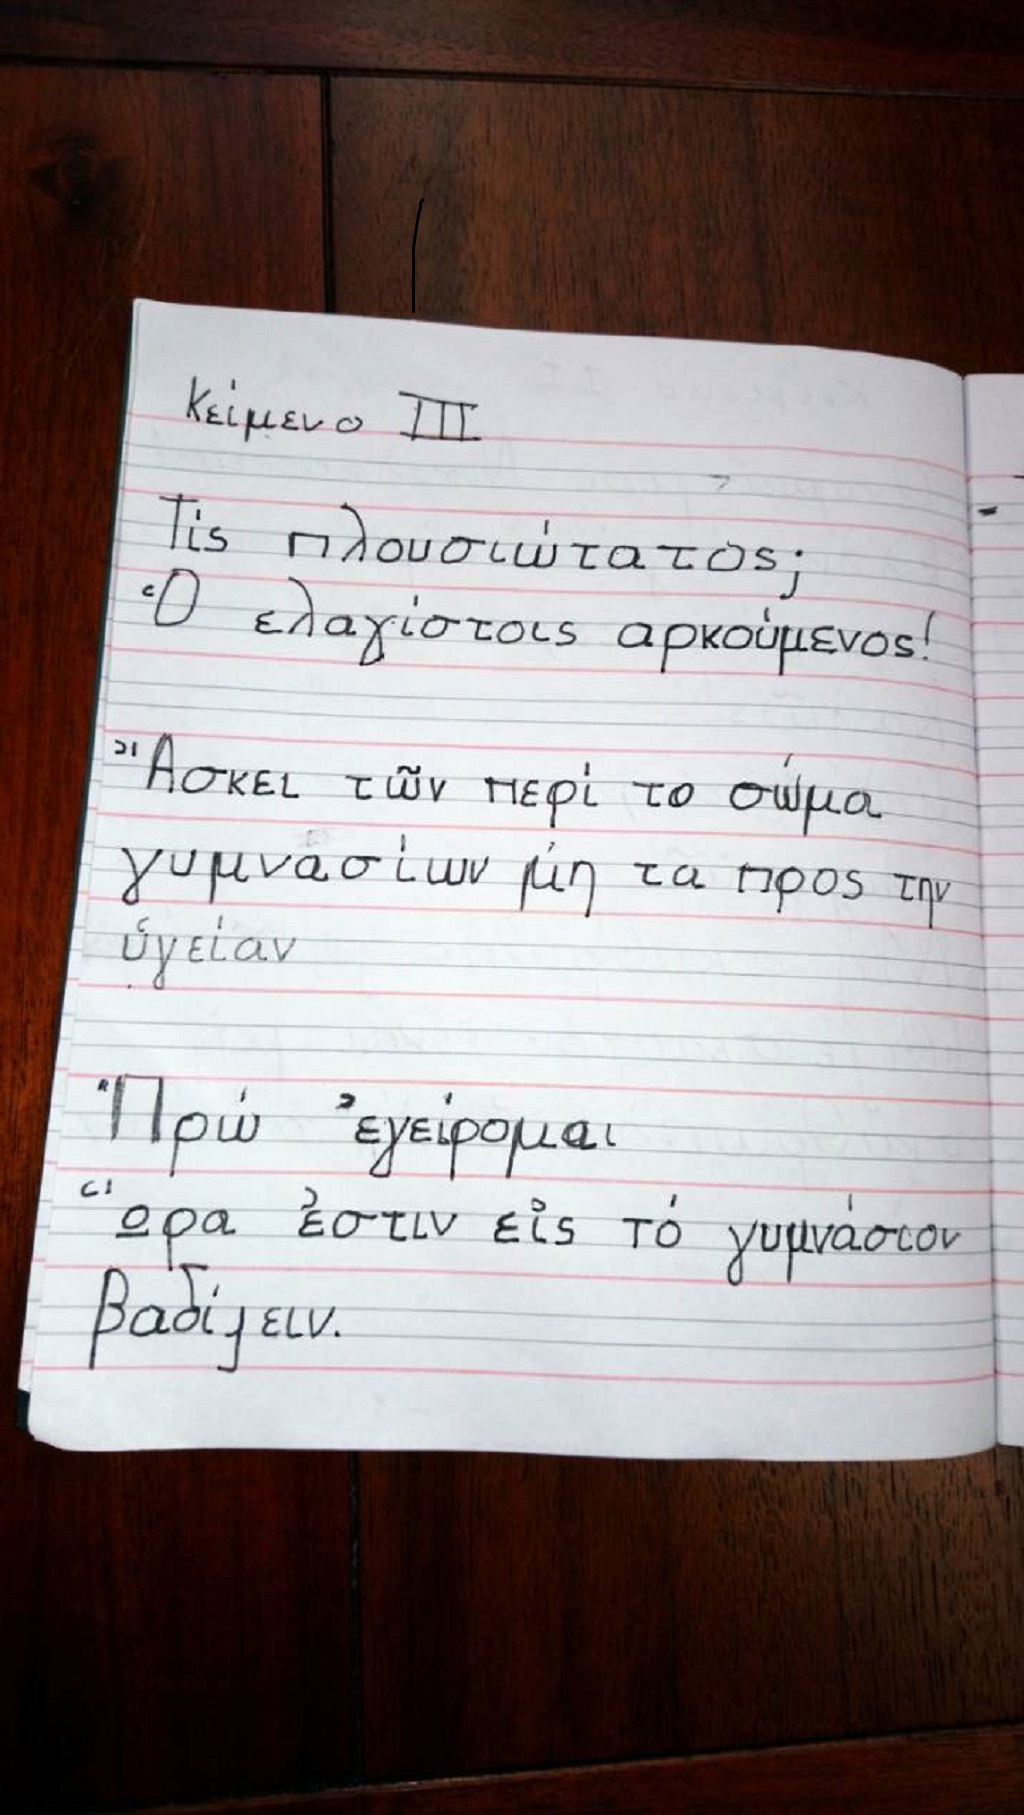 Κείμενο III
Τίς πλουσιώτατος;
Ὁ ελαγίστοις αρκούμενος!
Ἄσκει τῶν περί το σώμα
γυμνασίων μή τα προς την
ὑγείαν
Πρώ ἐγείρομαι
Ὥρα ἐστιν εἰς τό γυμνάσιον
βαδίζειν.